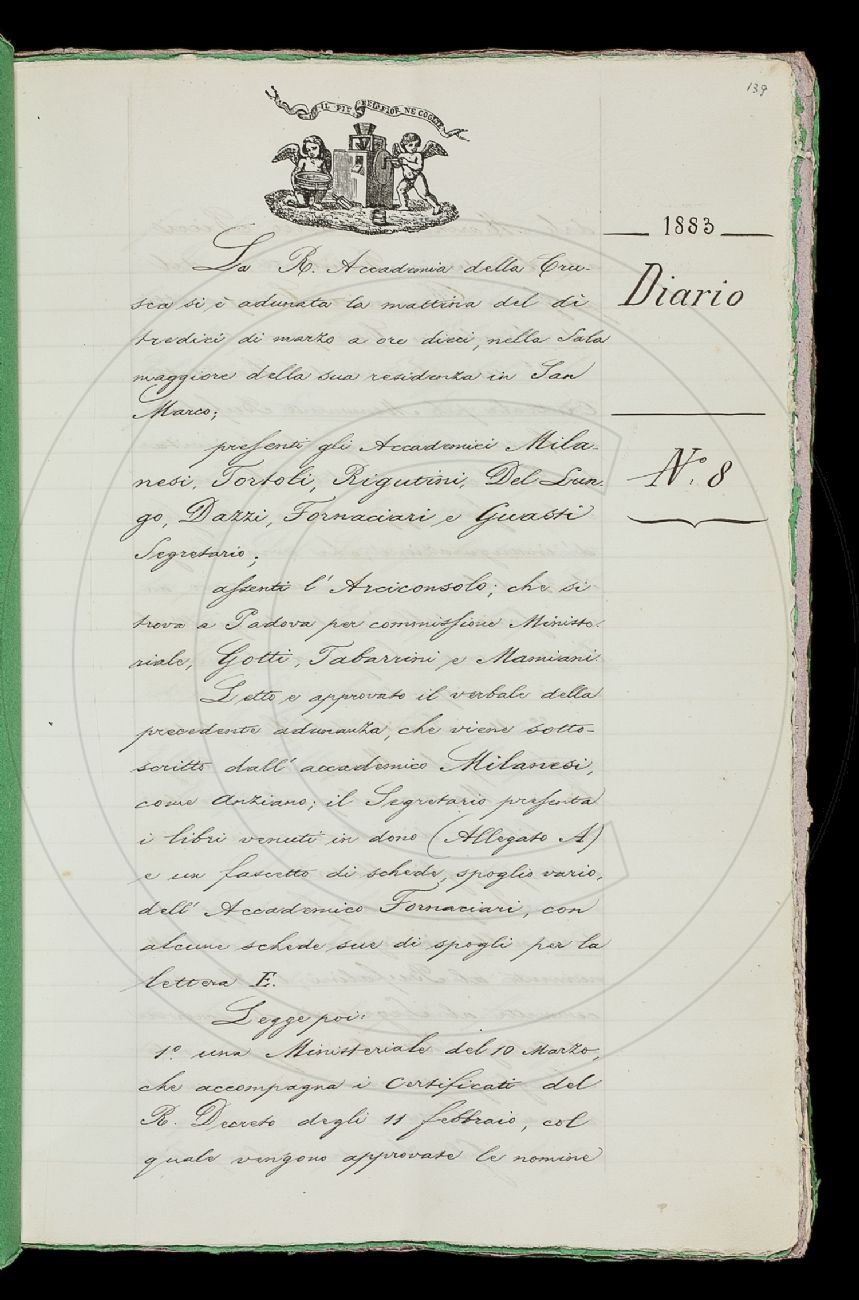 139
IL PIÙ BEL FIOR NE COGLIE
1883
Diario
N.º 8
La R. Accademia della Cru-
sca si è adunata la mattina del dì
tredici di marzo a ore dieci, nella Sala
maggiore della sua residenza in San
Marco;
presenti gli Accademici Mila-
nesi, Tortoli, Rigutini, Del Lun-
go, Dazzi, Fornaciari e Guasti
Segretario;
assenti l'Arciconsolo; che si
trova a Padova per commissione Ministe-
riale, Gotti, Tabarrini e Mamiani.
Letto e approvato il verbale della
precedente adunanza, che viene sotto-
scritto dall'accademico Milanesi,
come Anziano; il Segretario presenta
i libri venuti in dono (Allegato A)
e un fascetto di schede, spoglio vario,
dell'Accademico Fornaciari, con
alcune schede sue di spogli per la
lettera E.
Legge poi:
1.º una Ministeriale del 10 Marzo,
che accompagna i Certificati del
R. Decreto degli 11 febbraio, col
quale vengono approvate le nomine